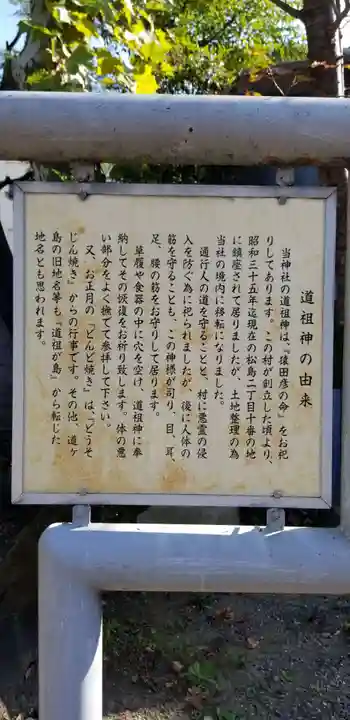 道祖神の由来
当神社の道祖神は『猿田彦の命』をお祀
りしてあります。この村が創立した頃より、
昭和三十五年迄現在の松島二丁目十番の地
に鎮座されて居りましたが、土地整理の為
当社の境内に移転になりました。
通行人の道を守ることと、村に悪霊の侵
入を防ぐ為に祀られましたが、後に人体の
筋を守ることも、この神様が司り、目、耳、
足、腰の筋をお守りして居ります。
草履や食器の中に穴を空け、道祖神に奉
納してその恢復をお祈り致します。体の悪
い部分をよく撫でて参拝して下さい。
又、お正月の「どんど焼き」は、『どうそ
じん焼き』からの行事です。その他、道ヶ
島の旧地名等も『道祖が島』から転じた
地名とも思われます。